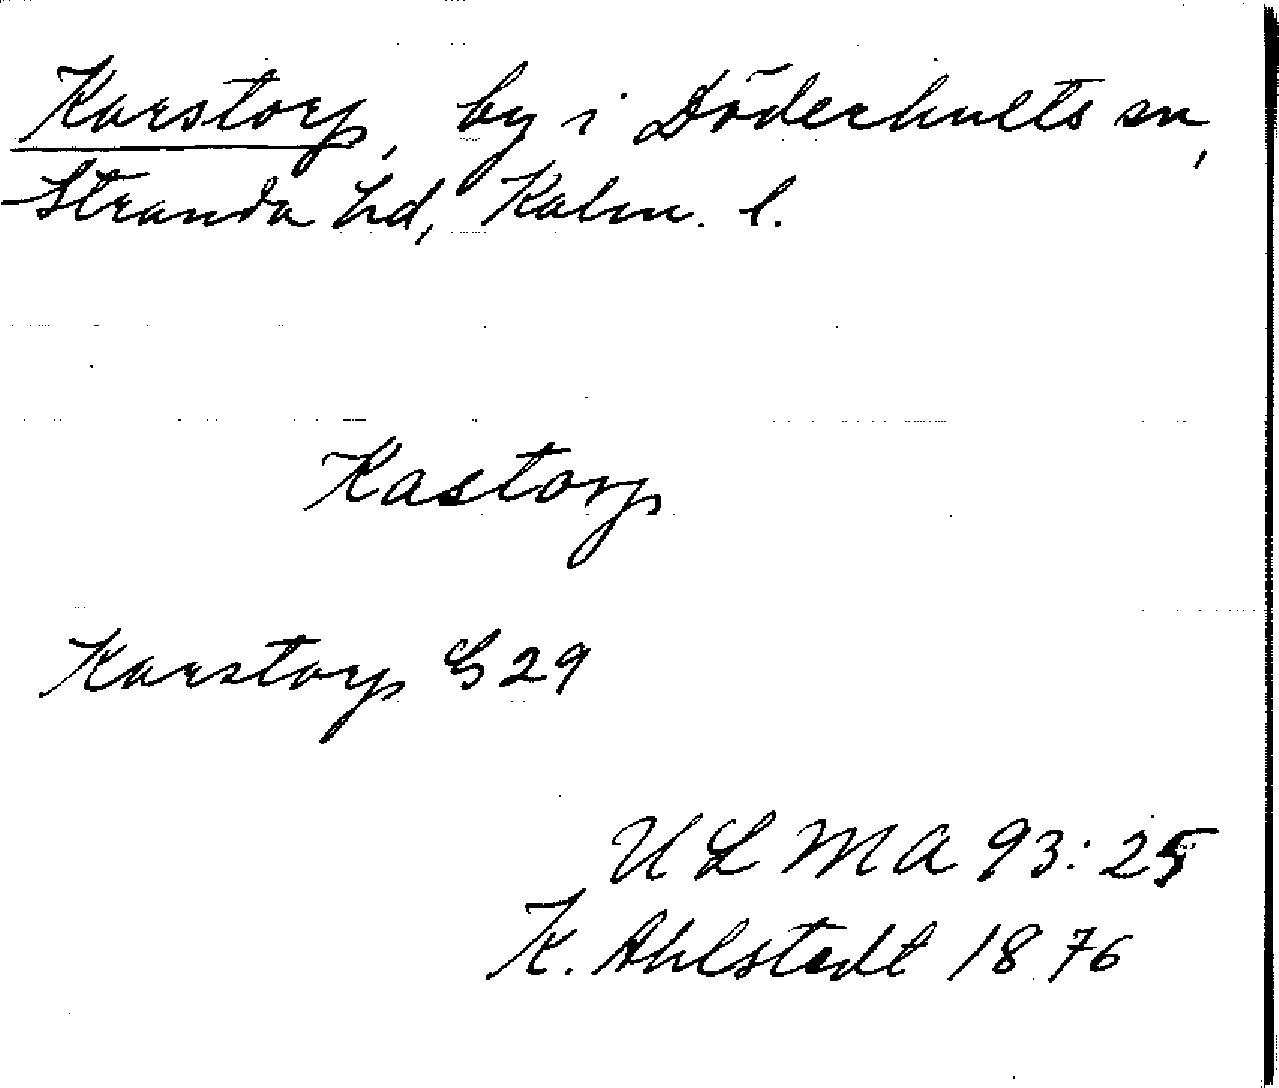 Karstorp, by i Döderhults sn,
Stranda hd, Kalm. l.
Kastorp
Karstorp G 29
ULMA 93:25
K. Ahlstedt 1876